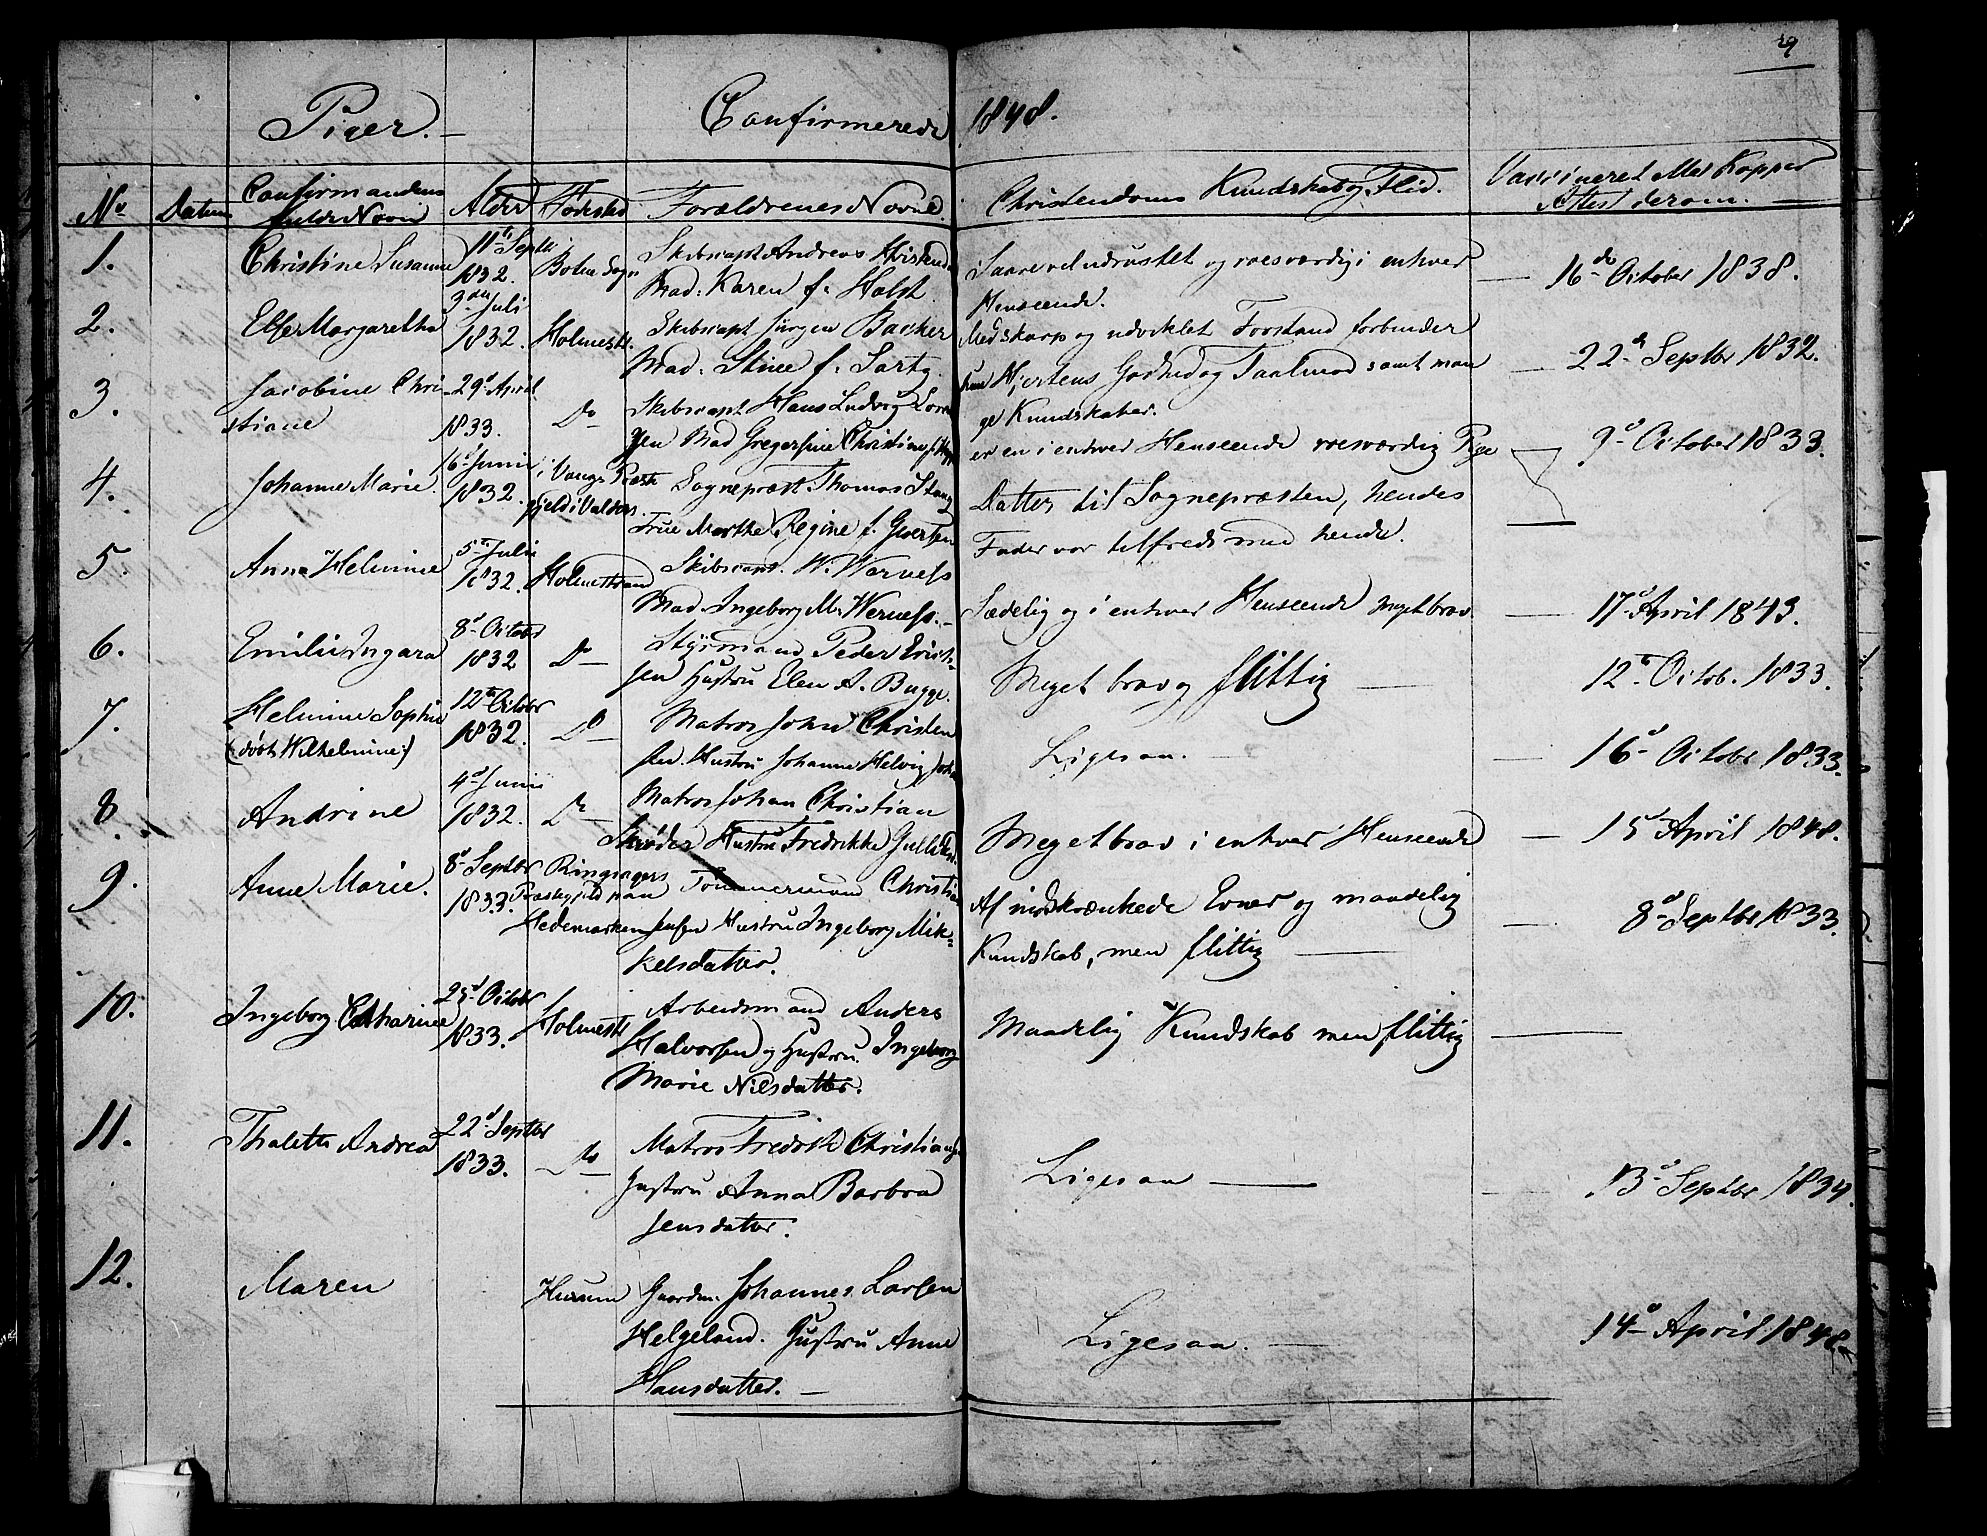 29
Piger. — Confirmerede 1848.
No Datum Confirmandens fulde Navn Alder Fødested Forældrenes Navne. Christendoms Kundskab og Flid. Vaccineret Med Kopper Attest derom. —
1. Christine Susanne 11te Septbr 1832. Botne Sogn Skibscapt Andreas
Mad: Karen f. Holst. Saare vel udrustet og roesværdig i enhver Henseende. — 16de October 1838.
2. Else Margarethe 3die Juli 1832. Holmestr. Skibscapt Jürgen Backer
Mad: Stine f. Sartz. Med skarp og udviklet Forstand forbinder
hun Hjertens Godhed og Taalmod samt man
ge Kundskaber. — 22d Septbr 1832.
3. Jacobine Chri
stiane 29d April 1833. Do Skibscapt Hans Ludvig Loren
zen Mad Gregersine Christine f.
er en i enhver Henseende roesværdig Pige 9d October 1833.
4. Johanne Marie. 16d Junii 1832. i Vangs Præste
gjeld i Valders. Sognepræst Thomas Stang
Frue Marthe Regine f. Gjertsen
Datter til Sognepræsten, hendes
Fader var tilfreds med hende.
5. Anna Helmine 5te Julii 1832. Holmestrand Skibscapt. W. Werness
Mad. Ingeborg M. Werness. — Sædelig og i enhver Henseende meget brav — 17d April 1843.
6. Emilie Ingara 8d Octobr 1832 Do — Styrmand Peder Erich-
sen Hustru Elen A. Bugge. Meget brav og flittig — 12te Octob. 1833.
7. Helmine Sophie
(døbt Wilhelmine:) 12te Octobr 1832. Do — Matros John Christen
sen. Hustru Johanne Helvig Ligesaa. — 16d Octobr 1833.
8. Andrine 4d Junii 1832. Do — Matros Johan Christian
Skrøder Hustru Fredrikke Meget brav i enhver Henseende — 15d April 1848.
9. Anne Marie. 8d Septbr 1833. Ringsagers
Præstegjeld paa
Hedemarken Tömmermand Christian
Jensen Hustru Ingeborg Mik-
kelsdatter. Af indskrænkede Evner og maadelig
Kundskab, men flittig — 8d Septbr 1833.
10. Ingeborg Catharine 25d Octobr 1833. Holmestr Arbeidsmand Anders
Halvorsen og Hustru Ingeborg
Marie Nilsdatter. Maadelig Kundskab men flittig —
11. Thalette Andrea 22d Septbr 1833. Do — Matros Fredrik Christians
Hustru Anna Barbra
Jensdatter. Ligesaa — 13d Septbr 1834.
12. Maren Hurum Gaardm. Johannes Larsen
Helgeland. Hustru Anne
Hansdatter. — Ligesaa. — 14d April 1848.